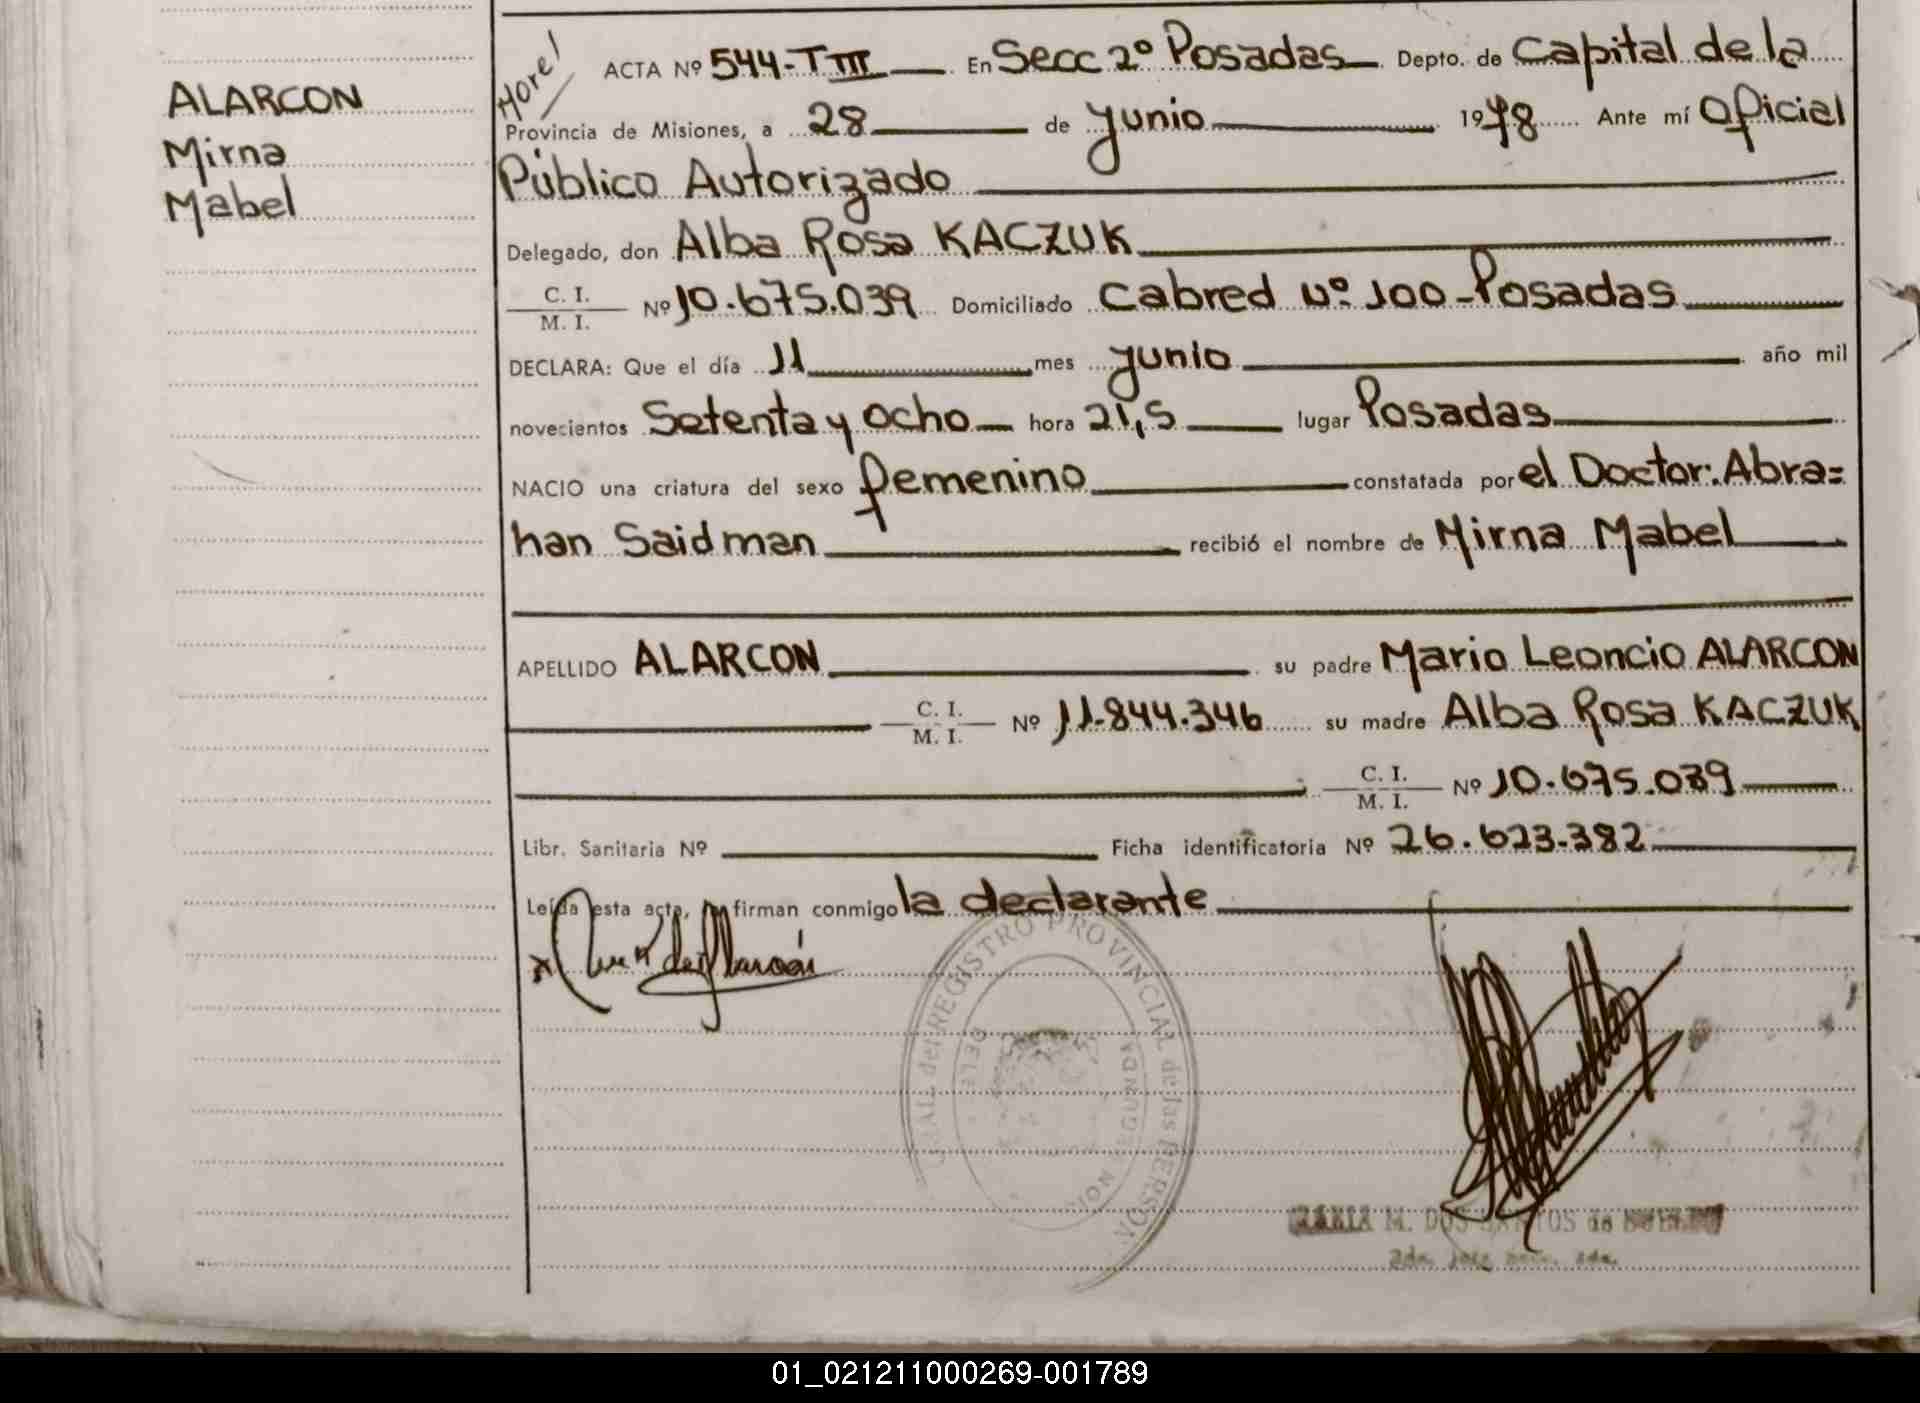 ALARCON
Mirna
Mabel
ACTA Nº 544-T III En Secc 2º Posadas Depto. de Capital de la
Provincia de Misiones, a 28 de junio 1978 Ante mí Oficial
Público Autorizado
Delegado, don Alba Rosa KACZUK
C. I.
M. I.
Nº 10.675.039 Domiciliado Cabred Nº 100-Posadas
DECLARA: Que el día 11 mes junio año mil
novecientos Setenta y ocho hora 21,5 lugar Posadas
NACIO una criatura del sexo femenino constatada por el Doctor: Abra=
han Saidman recibió el nombre de Mirna Mabel
APELLIDO ALARCON su padre Mario Leoncio ALARCON
C. I.
M. I.
Nº 11.844.346 su madre Alba Rosa KACZUK
C. I.
M. I.
Nº 10.675.039
Libr. Sanitaria Nº Ficha identificatoria Nº 26.623.382
Leída esta acta, firman conmigo la declarante
REGISTRO PROVINCIAL de las PERSON
SEGUNDA
M. DOS SANTOS de
01_021211000269-001789